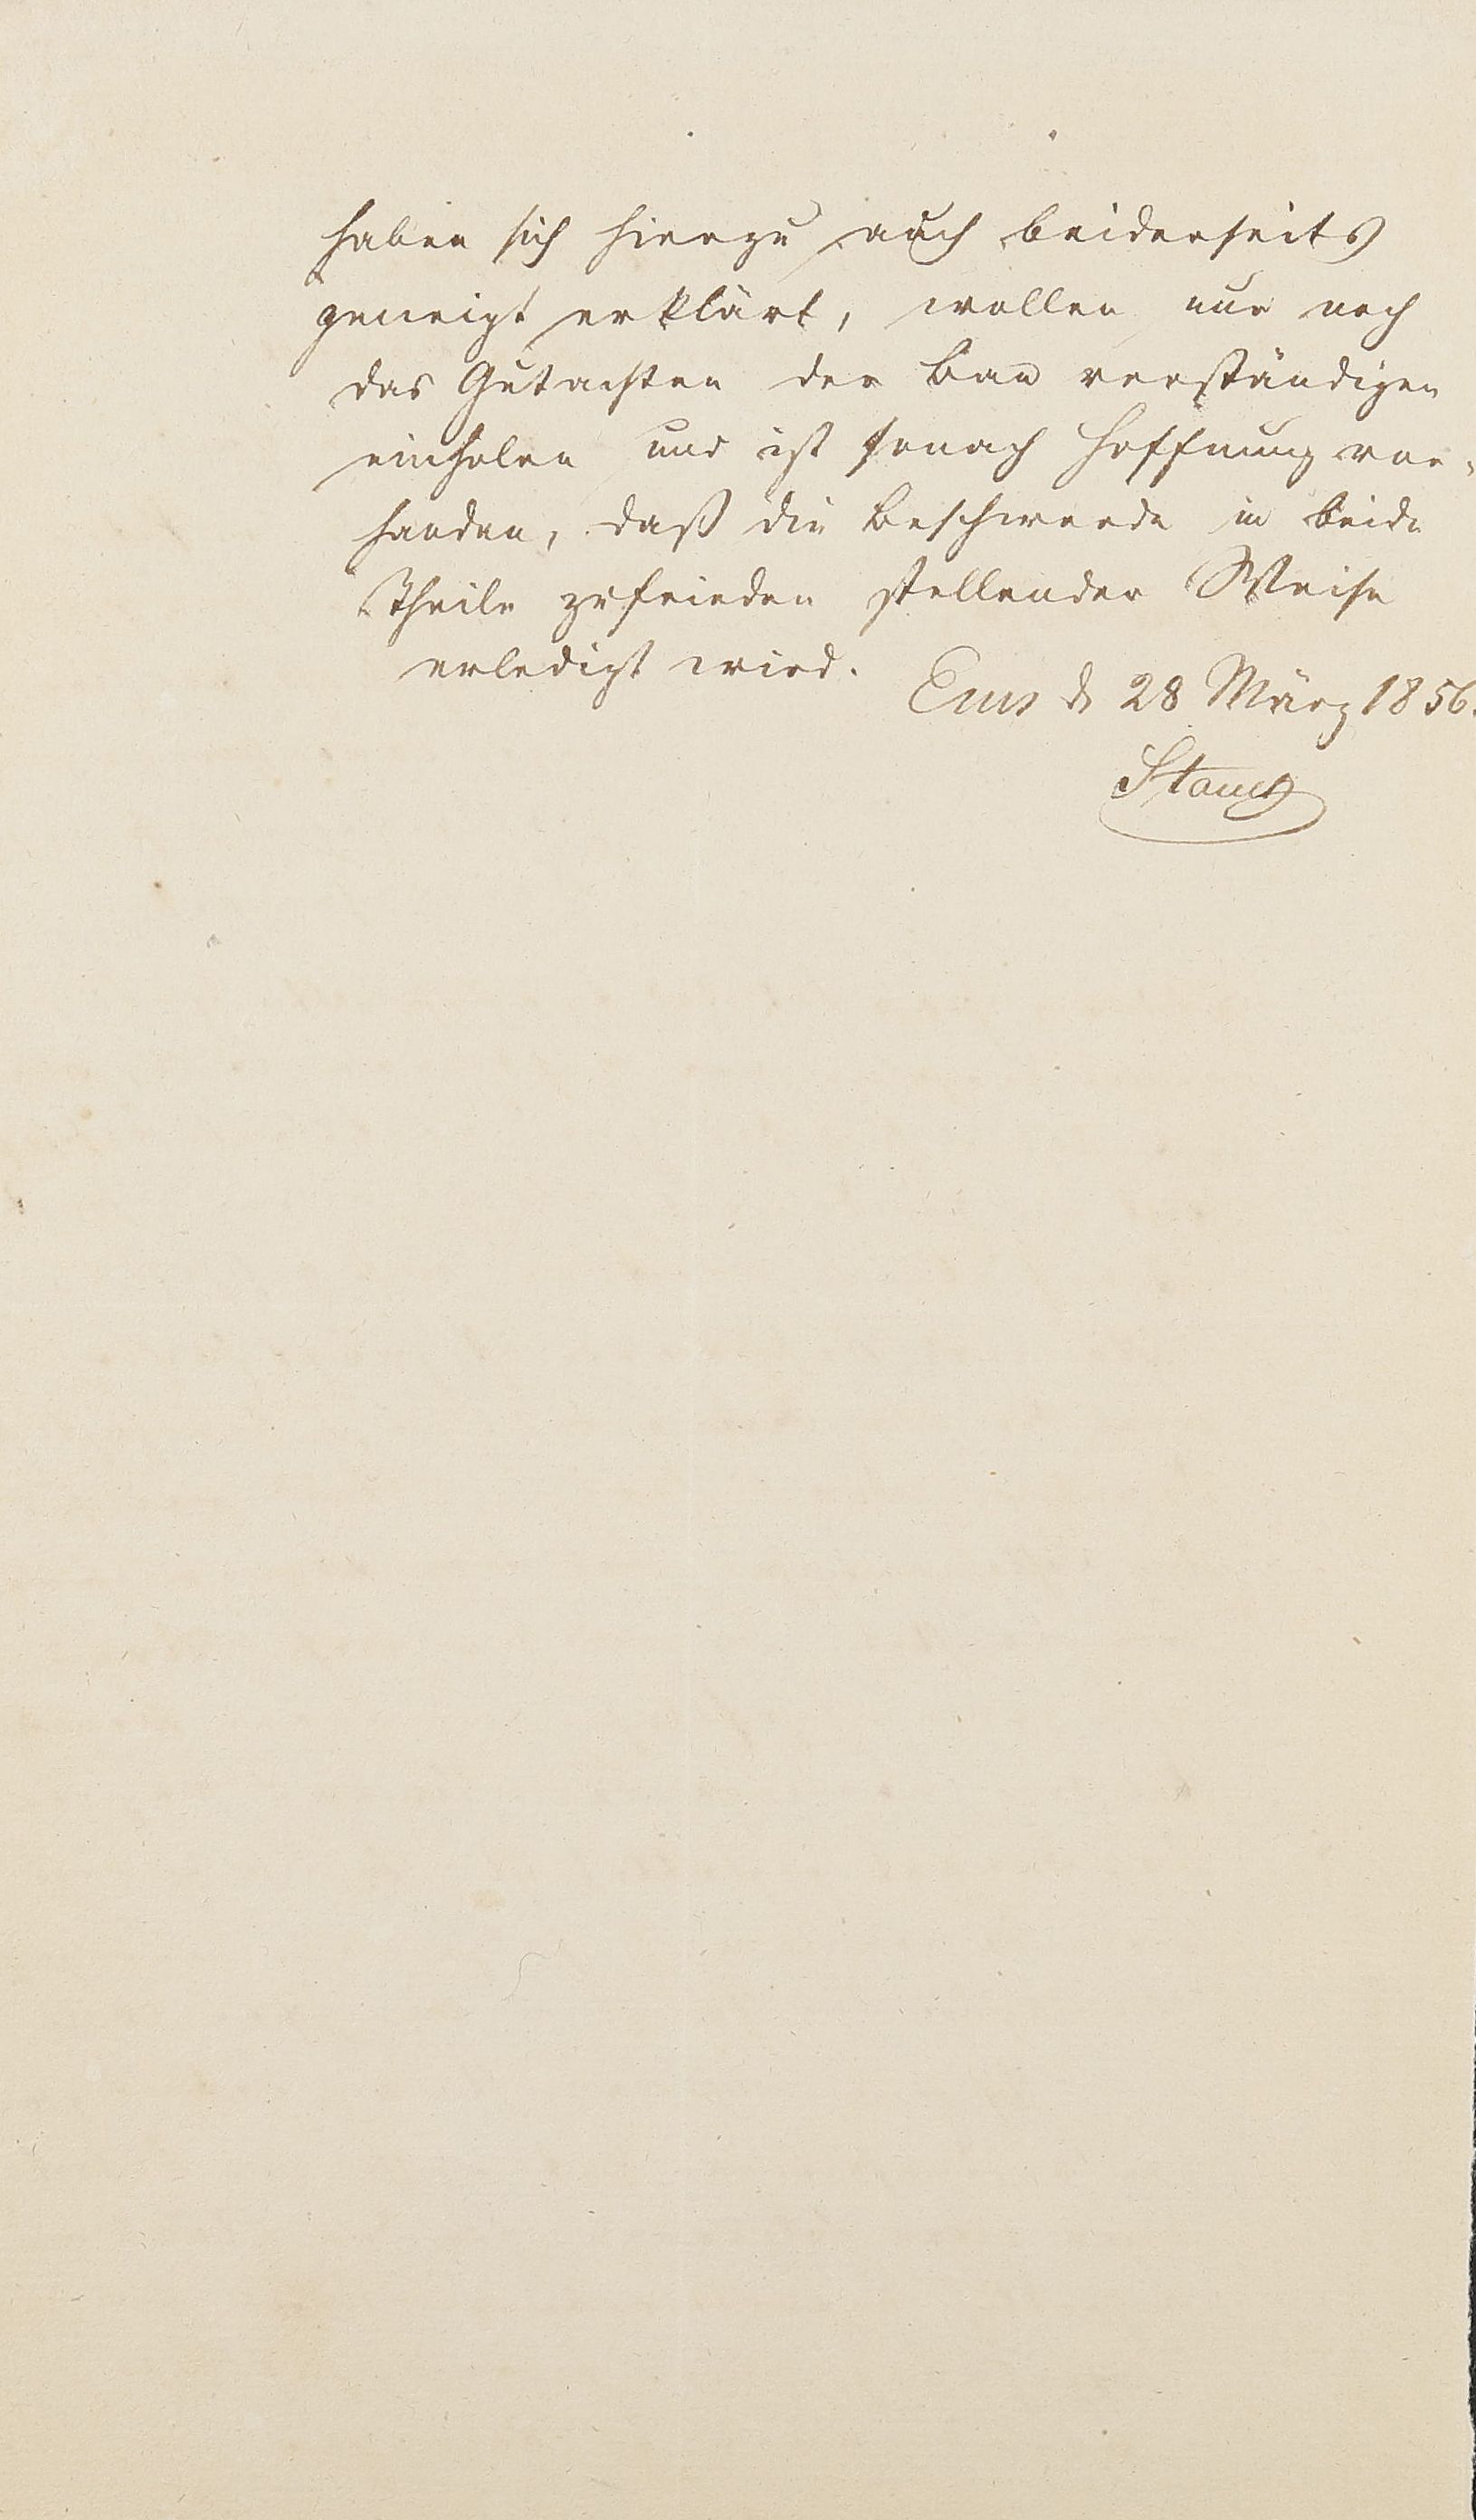 haben sich hierzu auch beiderseits
geneigt erklärt, wollen nur noch
das Gutachten der Bau verständigen
einholen und ist sonach Hoffnung vor-
handen, daß die Beschwerde in beide
Theile zufrieden stellender Weise
erledigt wird.
Ems d 28 März 1856.